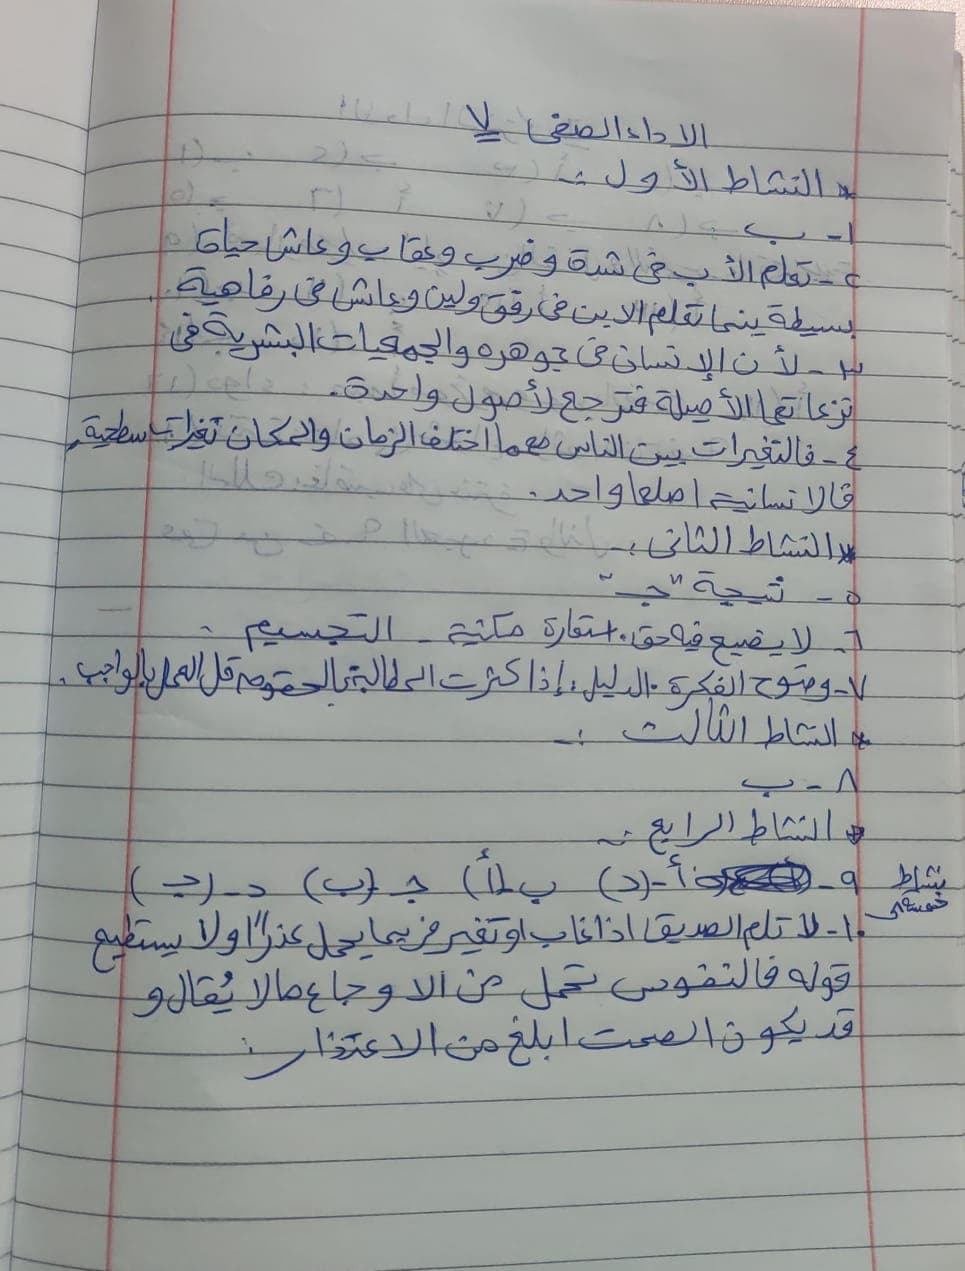 الاداء الصفى ٧
* النشاط الأول :-
١- ب
٢- تعلم الأب فى شدة وضرب وعقاب وعاش حياة
بسيطة بينما تعلم الابن فى رفق ولين وعاش فى رفاهية
٣- لأن الإنسان فى جوهره والجمعيات البشرية فى
نزعاتها الأصيلة فترجع لأصول واحدة.
٤- فالتغيرات بين الناس مهما اختلف الزمان والمكان تغيرات سطحية
فالانسانية اصلها واحد.
* النشاط الثانى :-
٥- نتيجة "جـ"
٦- لا يضيع فيه حق. استعارة مكنية - التجسيم .
٧- وضوح الفكرة . الدليل : إذا كثرت المطالبة بالحقوق قل العمل بالواجب .
* النشاط الثالث :-
٨- ب
* النشاط الرابع :-
نشاط
٩- أ- (د) ب- (أ) جـ- (ب) د- (جـ)
١٠- لا تلم الصديق اذا غاب او تغير فربما يحمل عذرًا ولا يستطيع
قوله فالنفوس تحمل من الاوجاع مالا يُقال و
قد يكون الصمت ابلغ من الاعتذار .